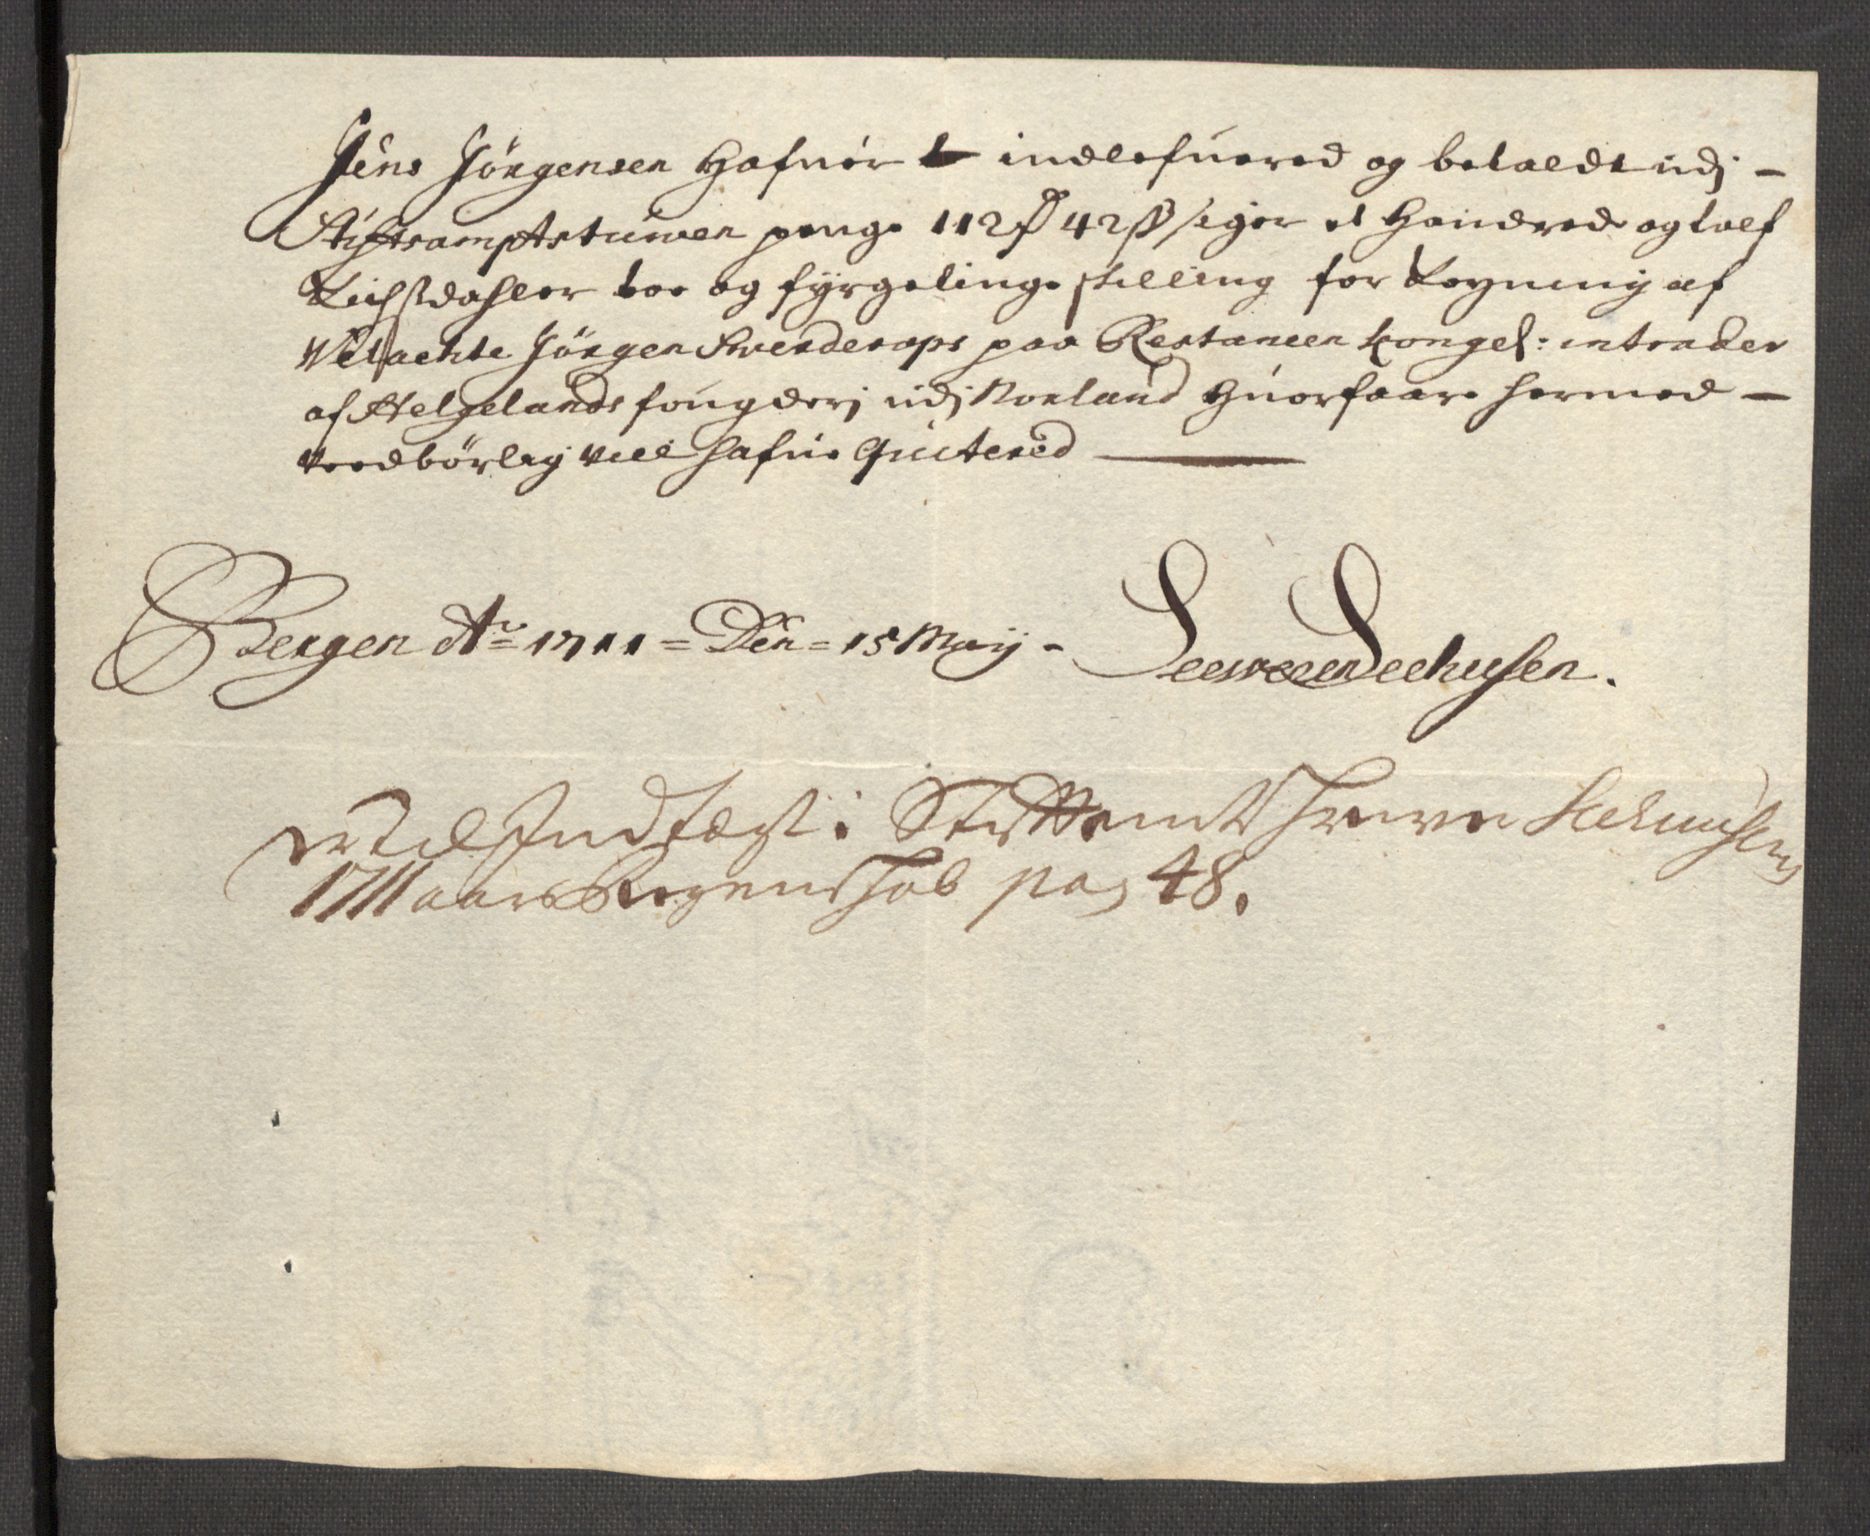 Jens Jörgensen Hafuer indlefuered og betaldt udj –
Stiftsamptstuwen penge 112 42 siger et Hundrede og tolf
Richsdahler toe og fyrgetinge skilling for Reyning af
Velachte Jörgen Swerderups paa Restancen kongel: intrader
af Helgelands fougderj udj Norland Huorfaare hermed –
Veedbörlig vill hafue quitered
Bergen Ao 1711 = Den = 15 May – Seehusen.
er til Indtegt i Stiftamts Seehusens
1711 aars Regenskab pag 48.